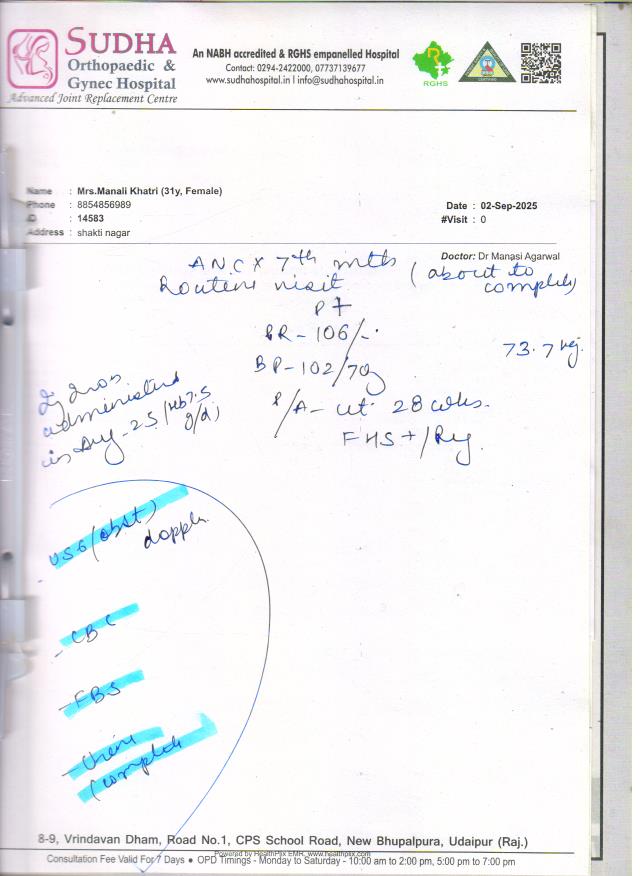 SUDHA
Orthopaedic &
Gynec Hospital
Advanced Joint Replacement Centre
An NABH accredited & RGHS empanelled Hospital
Contact: 0294-2422000, 07737139677
www.sudhahospital.in | info@sudhahospital.in
RGHS
Name : Mrs.Manali Khatri (31y, Female)
Phone : 8854856989
ID : 14583
Address : shakti nagar
Date : 02-Sep-2025
#Visit : 0
Doctor: Dr Manasi Agarwal
ANC x 7th mth (about to
Routine visit complete)
P+
PR - 106/-
73.7 kg.
BP - 102/70
administered
in Aug-25 (Hb 7.5
g/dl)
P/A - ut 28 wks.
FHS + / Reg
USG (obst)
doppler
- CBC
- FBS
- Urine
(complete
8-9, Vrindavan Dham, Road No.1, CPS School Road, New Bhupalpura, Udaipur (Raj.)
Powered by HealthPlix EMR. www.healthplix.com
Consultation Fee Valid For 7 Days ● OPD Timings - Monday to Saturday - 10:00 am to 2:00 pm, 5:00 pm to 7:00 pm